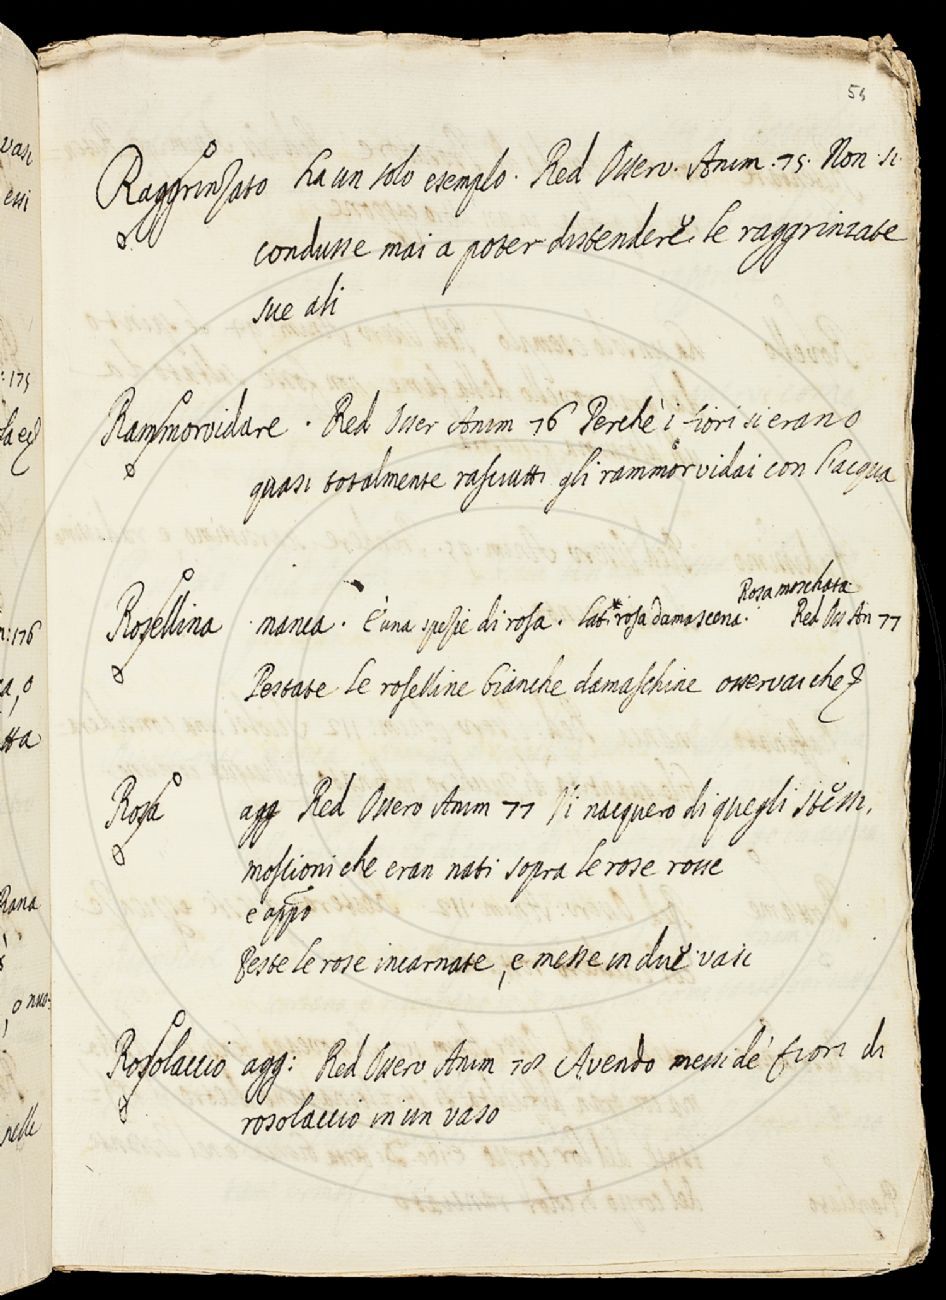 54
Raggrinzato ha un solo esempio. Red Osserv. Anim. 75. Non si
condusse mai a poter distendere le raggrinzate
sue ali
Rammorvidare. Red Osser Anim 76 Perchè i fiori si erano
quasi totalmente rasciutti gli rammorvidai con l'acqua
Rosa moschata
Rosellina manca. È una spezie di rosa. Lat. rosa damascena. Red Oss An 77
Pestate le roselline bianche damaschine osservai che
Rosa agg Red Osserv Anim 77 Vi nacquero di quegli stessi
moscioni che eran nati sopra le rose rosse
e appo
Peste le rose incarnate, e messe in due vasi
Rosolaccio agg: Red Osserv Anim 78 Avendo messi de' fiori di
rosolaccio in un vaso